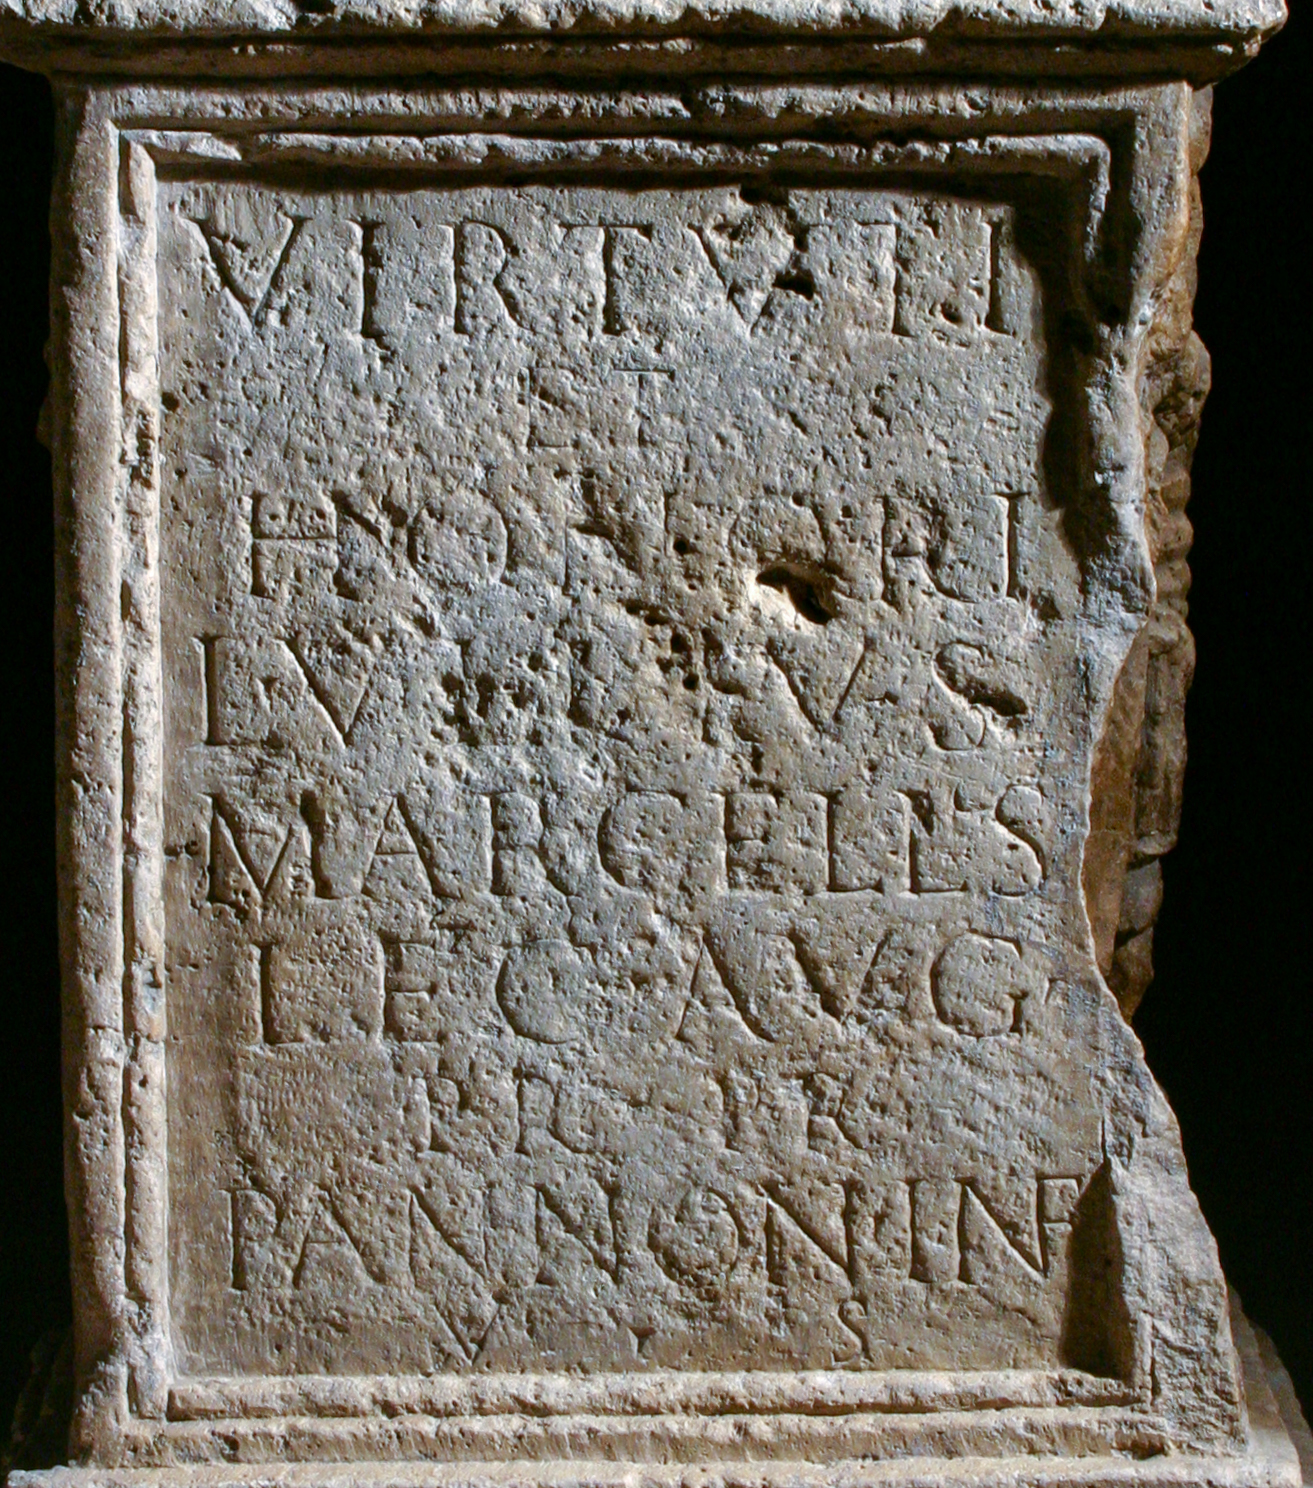 VIRTVTI
ET
HONORI
LVLPIVS
MARCELLVS
LEG AVG
PR PR
PANNON INF
V S